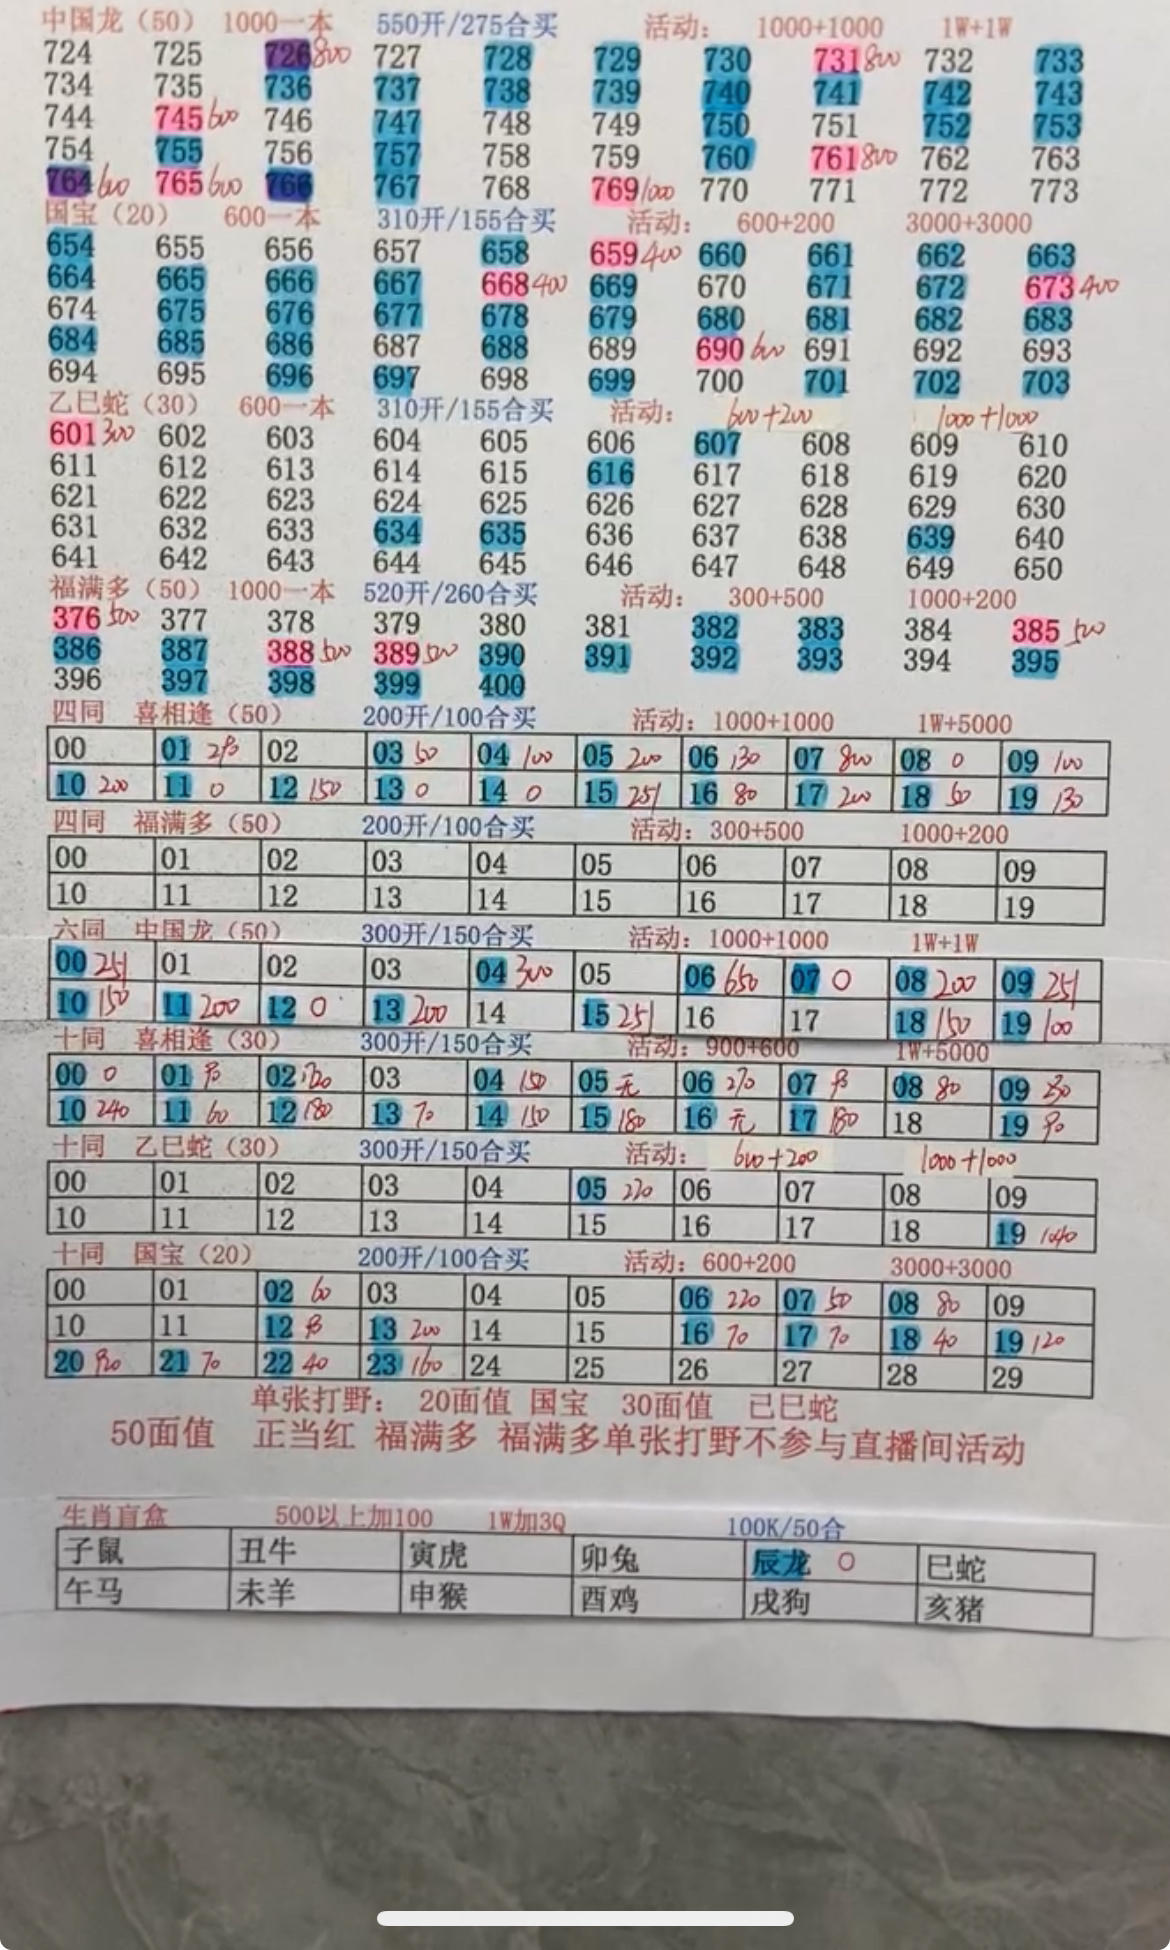 中国龙（50） 1000一本 550开/275合买 活动： 1000+1000 1W+1W
724 725 726 800 727 728 729 730 731 800 732 733
734 735 736 737 738 739 740 741 742 743
744 745 600 746 747 748 749 750 751 752 753
754 755 756 757 758 759 760 761 800 762 763
764 600 765 600 766 767 768 769 1000 770 771 772 773
国宝（20） 600一本 310开/155合买 活动： 600+200 3000+3000
654 655 656 657 658 659 400 660 661 662 663
664 665 666 667 668 400 669 670 671 672 673 400
674 675 676 677 678 679 680 681 682 683
684 685 686 687 688 689 690 600 691 692 693
694 695 696 697 698 699 700 701 702 703
乙巳蛇（30） 600一本 310开/155合买 活动： 600+200 1000+1000
601 300 602 603 604 605 606 607 608 609 610
611 612 613 614 615 616 617 618 619 620
621 622 623 624 625 626 627 628 629 630
631 632 633 634 635 636 637 638 639 640
641 642 643 644 645 646 647 648 649 650
福满多（50） 1000一本 520开/260合买 活动： 300+500 1000+200
376 500 377 378 379 380 381 382 383 384 385 500
386 387 388 500 389 500 390 391 392 393 394 395
396 397 398 399 400
四同 喜相逢（50） 200开/100合买 活动：1000+1000 1W+5000
00 01 02 03 50 04 100 05 200 06 130 07 800 08 0 09 100
10 200 11 0 12 150 13 0 14 0 15 251 16 80 17 200 18 50 19 130
四同 福满多（50） 200开/100合买 活动：300+500 1000+200
00 01 02 03 04 05 06 07 08 09
10 11 12 13 14 15 16 17 18 19
六同 中国龙（50） 300开/150合买 活动：1000+1000 1W+1W
00 251 01 02 03 04 300 05 06 650 07 0 08 200 09 251
10 150 11 200 12 0 13 200 14 15 251 16 17 18 150 19 100
十同 喜相逢（30） 300开/150合买 活动：900+600 1W+5000
00 0 01 02 03 04 150 05 无 06 270 07 08 80 09
10 240 11 60 12 180 13 70 14 150 15 180 16 无 17 180 18 19 90
十同 乙巳蛇（30） 300开/150合买 活动： 600+200 1000+1000
00 01 02 03 04 05 06 07 08 09
10 11 12 13 14 15 16 17 18 19
十同 国宝（20） 200开/100合买 活动：600+200 3000+3000
00 01 02 60 03 04 05 06 220 07 50 08 80 09
10 11 12 13 200 14 15 16 70 17 70 18 40 19 120
20 21 70 22 40 23 160 24 25 26 27 28 29
单张打野： 20面值 国宝 30面值 己巳蛇
50面值 正当红 福满多 福满多单张打野不参与直播间活动
生肖盲盒 500以上加100 1W加3Q 100K/50合
子鼠 丑牛 寅虎 卯兔 辰龙 0 巳蛇
午马 未羊 申猴 酉鸡 戌狗 亥猪